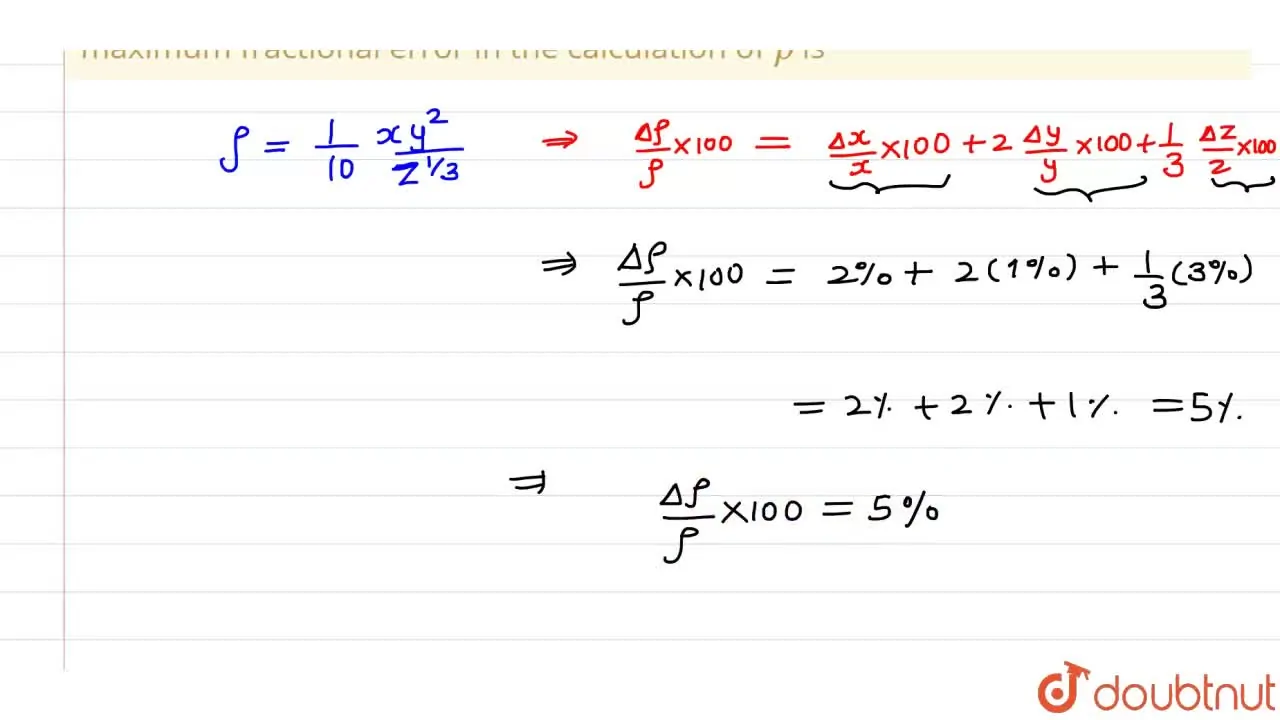 maximum fractional error in the calculation of p is
ρ = 1/10 xy²/z^1/3 ⇒ Δρ/ρ ×100 = Δx/x ×100 + 2 Δy/y ×100 + 1/3 Δz/z ×100
⇒ Δρ/ρ ×100 = 2% + 2(1%) + 1/3 (3%)
= 2% + 2% + 1% = 5%
⇒ Δρ/ρ ×100 = 5%
doubtnut